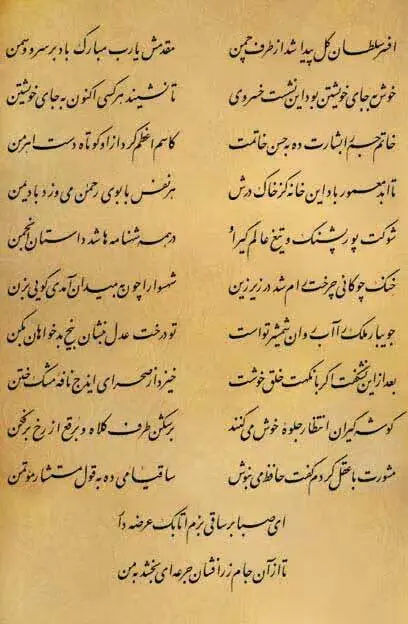 افسر سلطان گل پیدا شد از طرف چمن مقدمش یارب مبارک باد بر سرو و سمن
خوش به جای خویشتن بود این نشست خسروی تا نشیند هر کسی اکنون به جای خویشتن
خاتم جم را بشارت ده به حسن خاتمت کاسم اعظم کرد از او کوتاه دست اهرمن
تا ابد معمور باد این خانه کز خاک درش هر نفس با بوی رحمن می‌وزد باد یمن
شوکت پور پشنگ و تیغ عالم گیر او در همه شهنامه‌ها شد داستان انجمن
خنگ چوگانی چرخت رام شد در زیر زین شهسوارا چون به میدان آمدی گویی بزن
جویبار ملک را آب روان شمشیر تو است تو درخت عدل بنشان بیخ بدخواهان بکن
بعد از این نشکفت اگر با نکهت خلق خوشت خیزد از صحرای ایذج نافه مشک ختن
گوشه گیران انتظار جلوه خوش می‌کنند برشکن طرف کلاه و برقع از رخ برفکن
مشورت با عقل کردم گفت حافظ می بنوش ساقیا می ده به قول مستشار مؤتمن
ای صبا بر ساقی بزم اتابک عرضه دار
تا از آن جام زرافشان جرعه‌ای بخشد به من